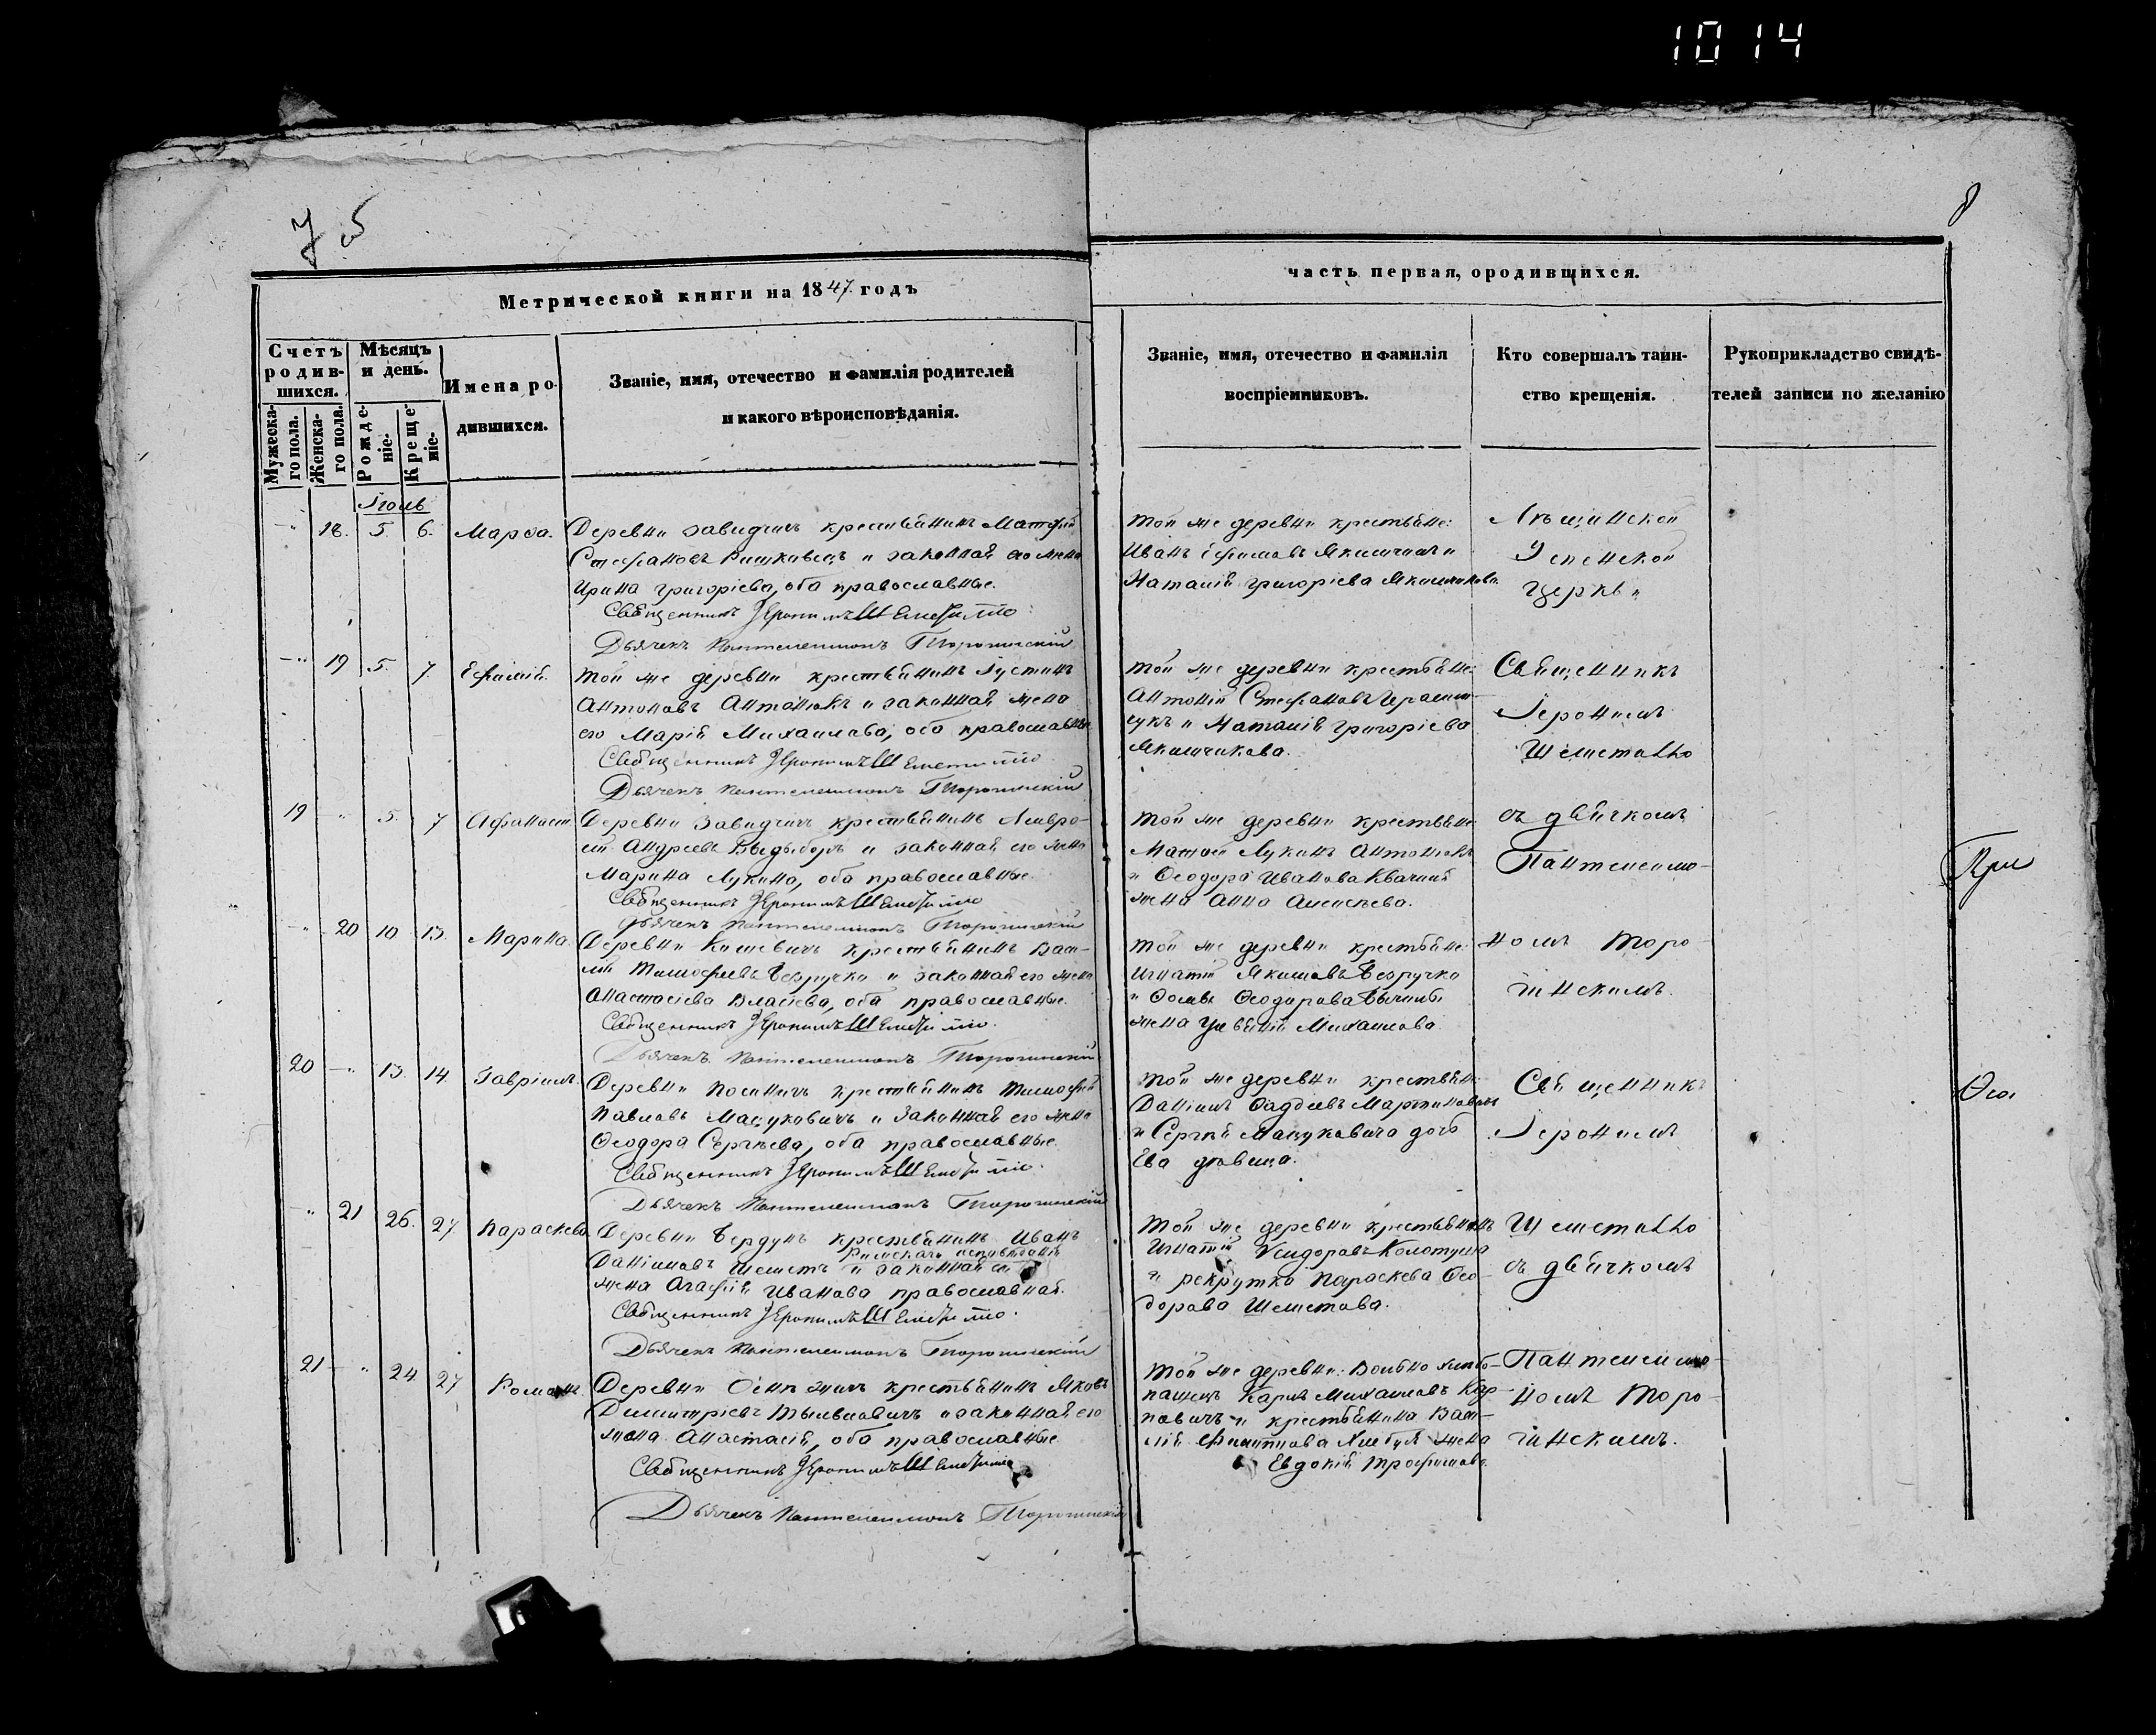 1014
75
8
Метрической книги на 1847. годъ
часть первая, ородившихся.
Счетъ родив-шихся.
Мѣсяцъ и день.
Мужеска-го пола.
Женска-го пола.
Рожде-ніе.
Креще-ніе.
Имена ро-
дившихся.
Званіе, имя, отечество и фамилія родителей
и какого вѣроисповѣданія.
Званіе, имя, отечество и фамилія
воспріемниковъ.
Кто совершалъ таин-
ство крещенія.
Рукоприкладство свидѣ-
телей записи по желанію
Іюль
18. 5 6. Марѳа. Деревни Завидчич крестьянинъ Матфей
Стефановъ и законная его жена
Ирина Григоріева, оба православные.
Священникъ Іеронимъ Шеметилло
Дьячекъ Пантелеимонъ Торогинскій
Той же деревни крестьяне:
Иванъ Ефимовъ Якимчикъ и
Наталія Григоріева Якимчикова
Успенской
Церкви
19 5. 7. Ефимія. Той же деревни крестьянинъ Іустинъ
Антоновъ Антонюкъ и законная жена
его Марія Михаилова, оба православные
Священникъ Іеронимъ Шеметилло
Дьячекъ Пантелеимонъ Торогинскій
Той же деревни крестьяне:
Антоній Стефановъ Гераси-
укъ и Наталія Григоріева
Якимчикова.
Священникъ
Іеронимъ
Шеметилло
19 5. 7 Афанасій Деревни Завидчич крестьянинъ Лавре-
ній Андреевъ Выдыборъ и законная его жена
Марина Лукина, оба православные.
Священникъ Іеронимъ Шеметилло
Дьячекъ Пантелеимонъ Торогинскій
Той же деревни крестьяне
Матѳей Лукинъ Антонюкъ
и Ѳеодора Иванова
жена Анна Алексѣева.
съ дьячкомъ
Пантелеимо-
20 10 13. Марина. Деревни крестьянинъ Васи-
лій Тимофеевъ Безручко и законная его жена
Анастасіева Власіева, оба православные.
Священникъ Іеронимъ Шеметилло.
Дьячекъ Пантелеимонъ Торогинскій
Той же деревни крестьяне:
Игнатій Якимовъ Безручко
и Ѳомы Ѳеодорова
жена Михаилова
номъ Торо-
гинскимъ.
20 13. 14. Гавріилъ. Деревни Посеничъ крестьянинъ Тимофей
Павловъ Мацуковичъ и законная его жена
Ѳеодора Сергѣева, оба православные.
Священникъ Іеронимъ Шеметилло.
Дьячекъ Пантелеимонъ Торогинскій
Той же деревни крестьяне:
Даніилъ Ѳаддеевъ Мартиновичъ
и Сергія Мацуковича дочь
Ева дѣвица.
Священникъ
Іеронимъ
21 26. 27 Параскева Деревни Бердунъ крестьянинъ Иванъ
Римскаго исповѣданія
Даніиловъ Шеметъ и законная его
жена Агафія Иванова православная.
Священникъ Іеронимъ Шеметилло.
Дьячекъ Пантелеимонъ Торогинскій
Той же деревни крестьянинъ
Игнатій Исидоровъ Колотуша
и рекрутка Параскева Ѳео-
дорова Шеметова.
Шеметилло
съ дьячкомъ
21 24 27 Романъ. Деревни крестьянинъ Яковъ
Димитріевъ и законная его
жена Анастасія, оба православные.
Священникъ Іеронимъ Шеметилло
Дьячекъ Пантелеимонъ Торогинскій
Той же деревни: Вольно хлѣбо-
пашецъ Карпъ Михаиловъ Кар-
повичъ и крестьянина Васи-
лія Филиппова жена
Евдокія Трофимова.
Пантелеимо-
номъ Торо-
гинскимъ.
При
Ѳео.